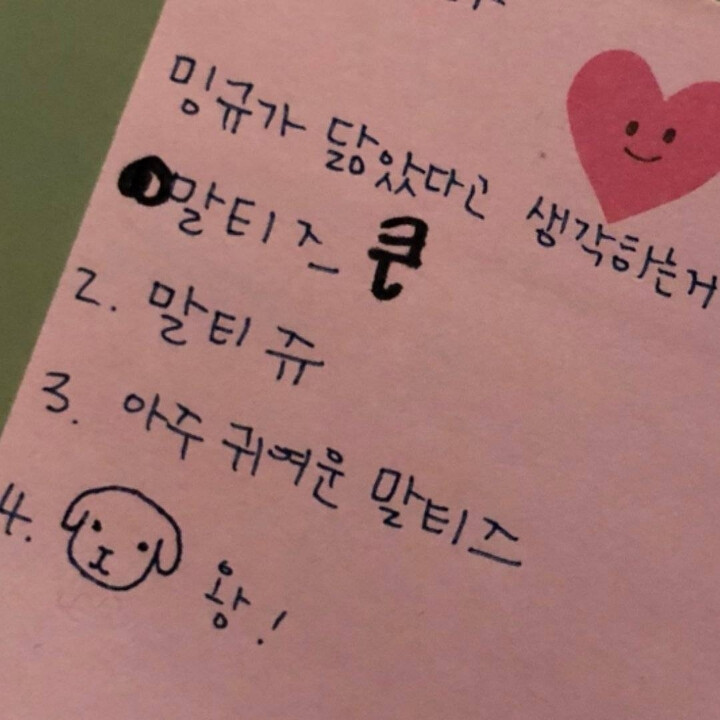 밍규가 닮았다고 생각하는거
1 말티즈 큰
2. 말티쥬
3. 아주 귀여운 말티즈
4. 왕!